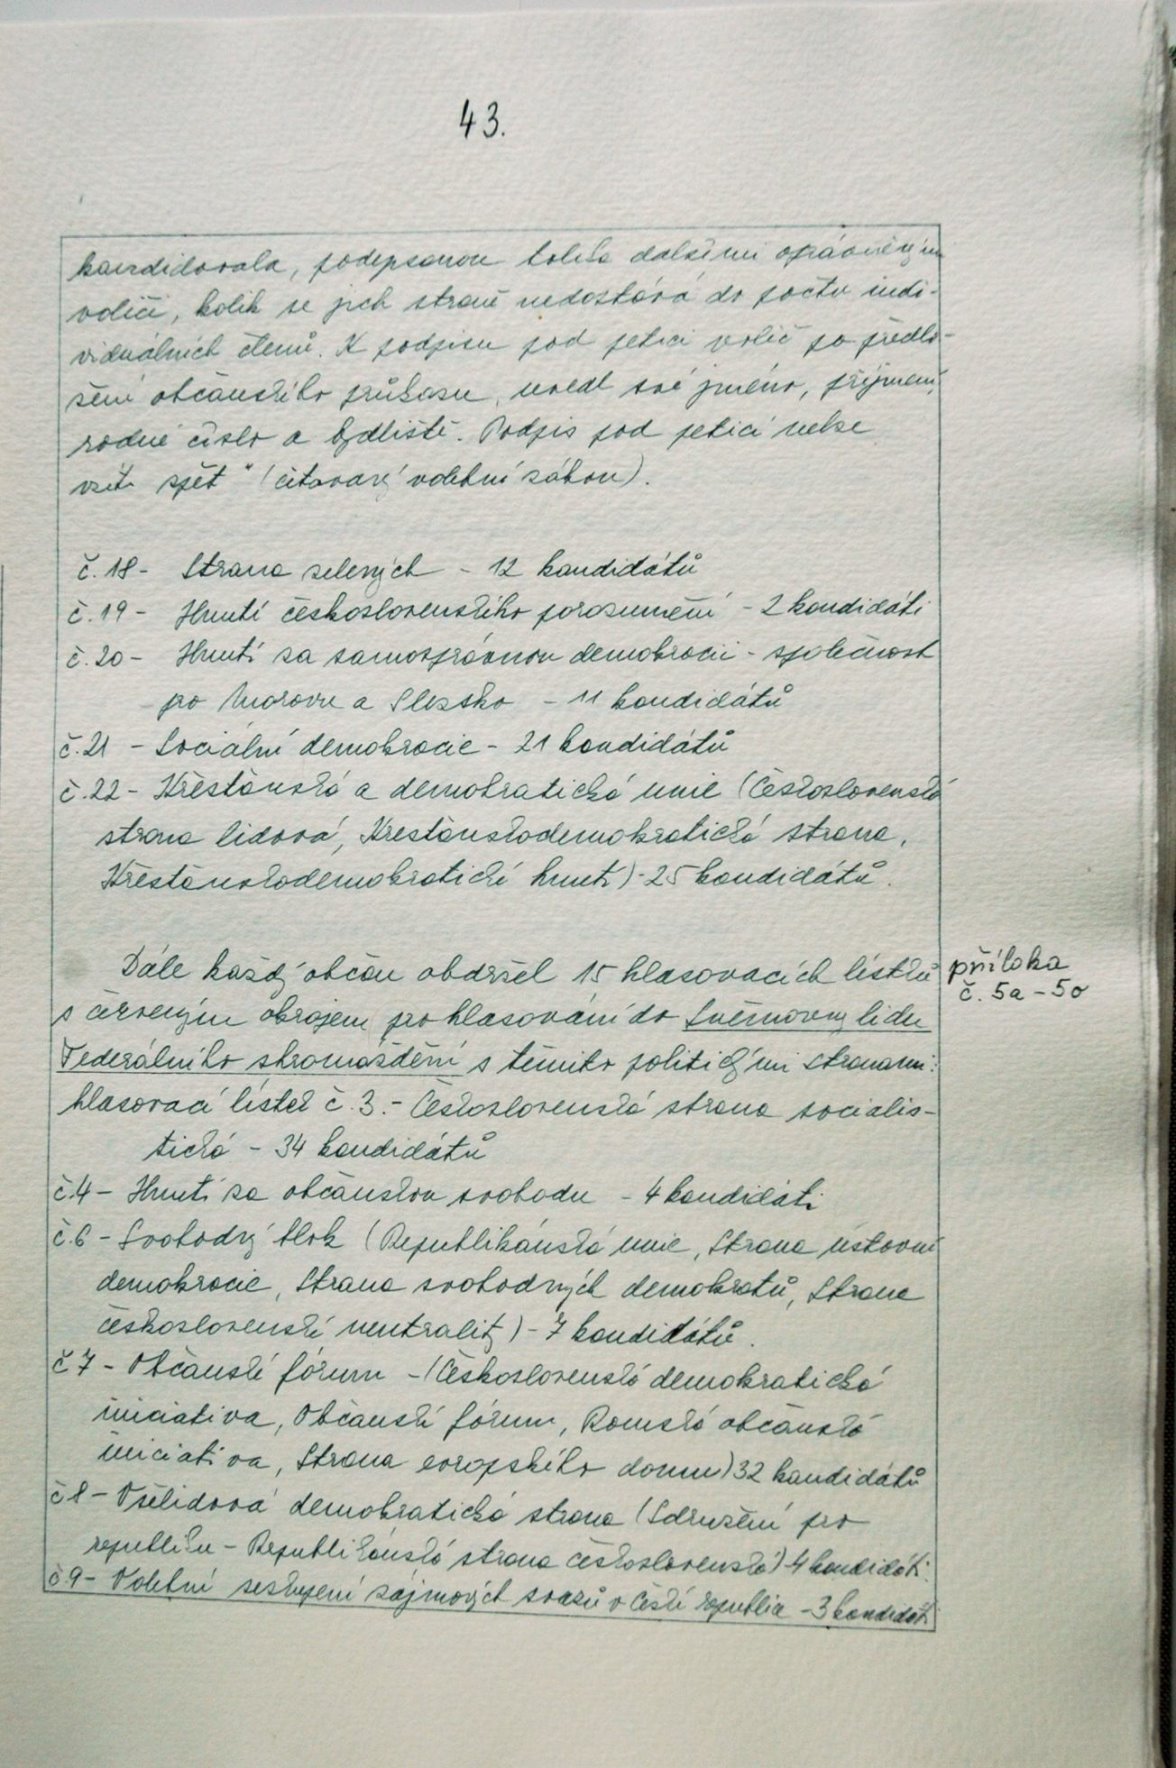 43.
kandidovala, podepsanou tolika dalšími oprávněnými
voliči, kolik se jich straně nedostává do počtu indi-
viduálních členů. K podpisu pod petici volič po předlo-
žení občanského průkazu, uvedl své jméno, příjmení,
rodné číslo a bydliště. Podpis pod peticí nelze
vzít zpět" (citovaný volební zákon).
č.18- Strana zelených - 12 kandidátů
č.19- Hnutí československého porozumění - 2 kandidáti
č.20- Hnutí za samosprávnou demokracii - společnost
pro Moravu a Slezsko - 11 kandidátů
č.21 - Sociální demokracie - 21 kandidátů
č.22- Křesťanská a demokratická unie (Československá
strana lidová, Křesťanskodemokratická strana,
Křesťanskodemokratické hnutí)-25 kandidátů.
Dále každý občan obdržel 15 hlasovacích lístků
s červeným okrajem pro hlasování do Sněmovny lidu
Federálního shromáždění s těmito politickými stranami:
hlasovací lístek č.3.- Československá strana socialis-
tická - 34 kandidátů
č.4- Hnutí za občanskou svobodu - 4 kandidáti
č.6-Svobodný blok (Republikánská unie, Strana ústavní
demokracie, Strana svobodných demokratů, Strana
československé neutrality)-7 kandidátů.
č 7 - Občanské fórum -(Československá demokratická
iniciativa, Občanské fórum, Romská občanská
iniciativa, Strana evropského domu) 32 kandidátů
č 8- Všelidová demokratická strana (Sdružení pro
republiku - Republikánská strana československá)-4 kandidáti.
č 9- Volební seskupení zájmových svazů v České republice -3 kandidáti
příloha
č. 5a-5o